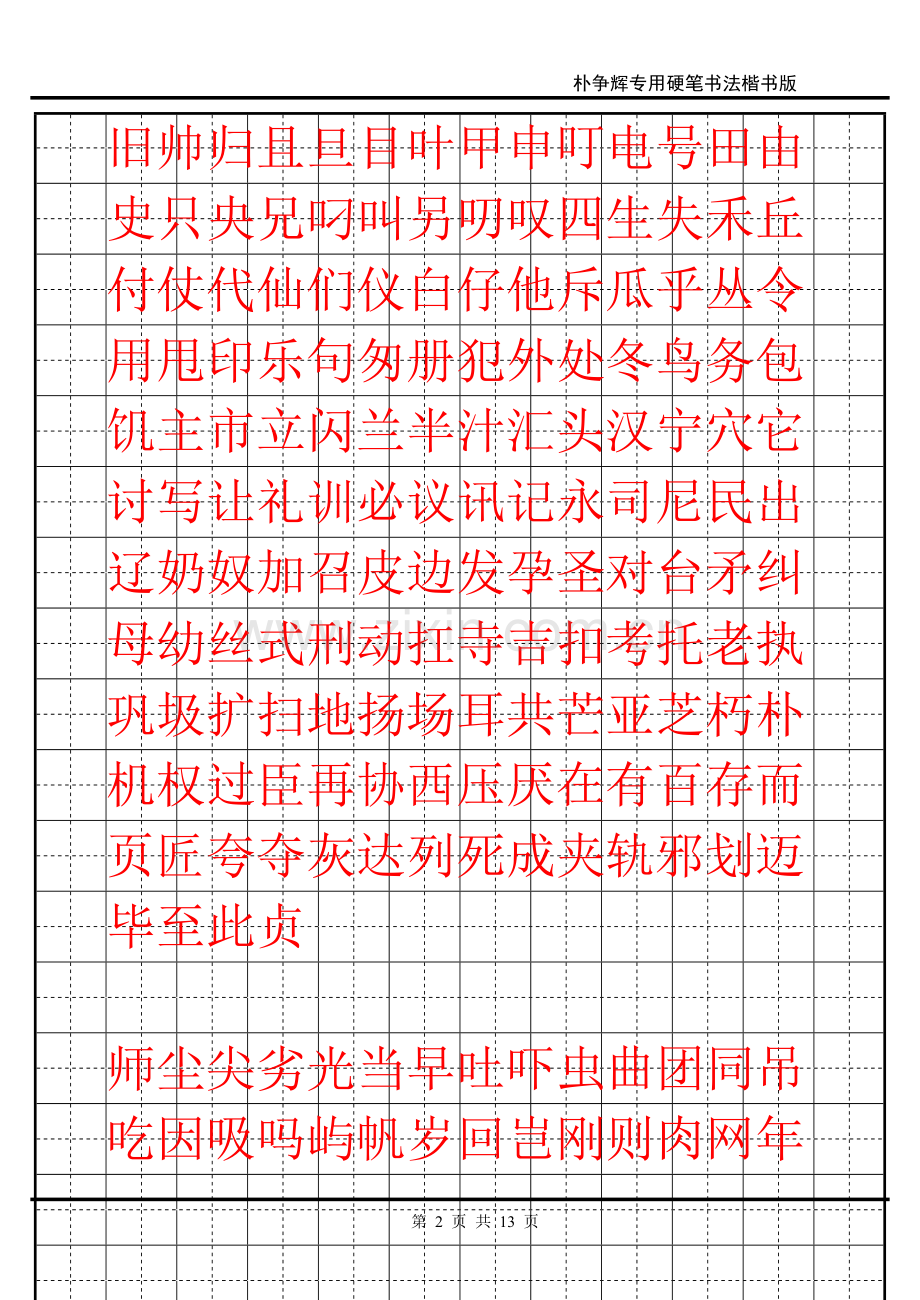 朴争辉专用硬笔书法楷书版
旧帅归且旦目叶甲申叮电号田由
史只央兄叼叫另叨叹四生失禾丘
付仗代仙们仪白仔他斥瓜乎丛令
用甩印乐句匆册犯外处冬鸟务包
饥主市立闪兰半汁汇头汉宁穴它
讨写让礼训必议讯记永司尼民出
辽奶奴加召皮边发孕圣对台矛纠
母幼丝式刑动扛寺吉扣考托老执
巩圾扩扫地扬场耳共芒亚芝朽朴
机权过臣再协西压厌在有百存而
页匠夸夺灰达列死成夹轨邪划迈
毕至此贞
师尘尖劣光当早吐吓虫曲团同吊
吃因吸吗屿帆岁回岂刚则肉网年
第 2 页 共 13 页
www.zixin.com.cn